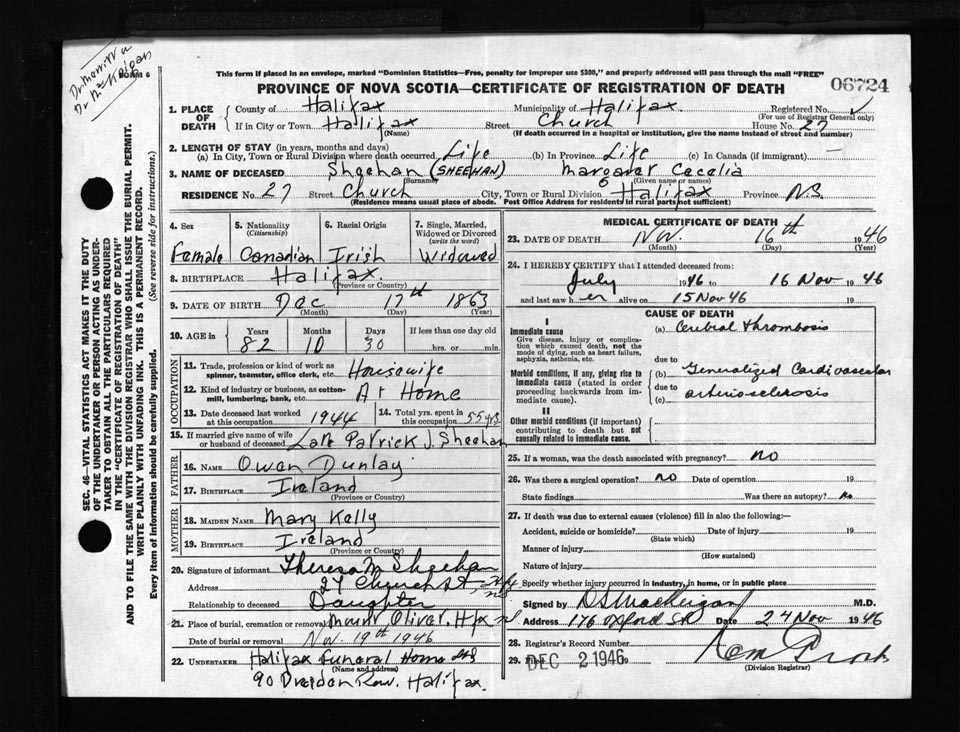 Dr Merritt
Dr McKeigan
FORM 6
This form if placed in an envelope, marked "Dominion Statistics—Free, penalty for improper use $300," and properly addressed will pass through the mail "FREE"
06724
PROVINCE OF NOVA SCOTIA—CERTIFICATE OF REGISTRATION OF DEATH
1. PLACE OF DEATH { County of Halifax Municipality of Halifax Registered No. ✓
(For use of Registrar General only)
If in City or Town Halifax Street Church House No. 27
(Name) (If death occurred in a hospital or institution, give the name instead of street and number)
2. LENGTH OF STAY (in years, months and days)
(a) In City, Town or Rural Division where death occurred Life (b) In Province Life (c) In Canada (if immigrant) —
3. NAME OF DECEASED Sheehan (SHEEHAN) Margaret Cecelia
(Surname) (Given name or names)
RESIDENCE No. 27 Street Church City, Town or Rural Division Halifax Province N.S.
(Residence means usual place of abode. Post Office Address for residents in rural parts not sufficient)
SEC. 46—VITAL STATISTICS ACT MAKES IT THE DUTY
OF THE UNDERTAKER OR PERSON ACTING AS UNDER-
TAKER TO OBTAIN ALL THE PARTICULARS REQUIRED
IN THE "CERTIFICATE OF REGISTRATION OF DEATH"
AND TO FILE THE SAME WITH THE DIVISION REGISTRAR WHO SHALL ISSUE THE BURIAL PERMIT.
WRITE PLAINLY WITH UNFADING INK. THIS IS A PERMANENT RECORD.
Every item of information should be carefully supplied. (See reverse side for instructions.)
4. Sex 5. Nationality (Citizenship) 6. Racial Origin 7. Single, Married, Widowed or Divorced (write the word)
Female Canadian Irish Widowed
8. BIRTHPLACE Halifax.
(Province or Country)
9. DATE OF BIRTH Dec 17th 1863
(Month) (Day) (Year)
10. AGE in { Years Months Days If less than one day old
82 10 30 hrs. or min.
OCCUPATION
11. Trade, profession or kind of work as spinner, teamster, office clerk, etc. Housewife
12. Kind of industry or business, as cotton-mill, lumbering, bank, etc. At Home
13. Date deceased last worked at this occupation 1944 14. Total yrs. spent in this occupation 55 yrs
15. If married give name of wife or husband of deceased Late Patrick J. Sheehan
FATHER
16. NAME Owen Dunlay
17. BIRTHPLACE Ireland
(Province or Country)
MOTHER
18. MAIDEN NAME Mary Kelly
19. BIRTHPLACE Ireland
(Province or Country)
20. Signature of informant Theresa M Sheehan
Address 27 Church St. Hfx NS
Relationship to deceased Daughter
21. Place of burial, cremation or removal Mount Olivet. Hfx NS
Date of burial or removal Nov. 19th 1946
22. UNDERTAKER Halifax Funeral Home Ltd
(Name and address)
90 Dresden Row. Halifax.
MEDICAL CERTIFICATE OF DEATH
23. DATE OF DEATH Nov. 16th 1946
(Month) (Day) (Year)
24. I HEREBY CERTIFY that I attended deceased from:
July 1946 to 16 Nov 1946
and last saw her alive on 15 Nov 46 19
CAUSE OF DEATH
I
Immediate cause (a) Cerebral thrombosis
Give disease, injury or complication which caused death, not the mode of dying, such as heart failure, asphyxia, asthenia, etc.
due to
Morbid conditions, if any, giving rise to immediate cause (stated in order proceeding backwards from immediate cause).
(b) Generalized Cardiovascular
due to
(c) arteriosclerosis
II
Other morbid conditions (if important) contributing to death but not causally related to immediate cause.
25. If a woman, was the death associated with pregnancy? no
26. Was there a surgical operation? no Date of operation 19
State findings Was there an autopsy? no
27. If death was due to external causes (violence) fill in also the following:—
Accident, suicide or homicide? Date of injury 19
(State which)
Manner of injury
(How sustained)
Nature of injury
Specify whether injury occurred in industry, in home, or in public place
Signed by D S MacKeigan M.D.
Address 176 Oxford St. Date 24 Nov 1946
28. Registrar's Record Number
29. Filed DEC 2 1946 19
(Division Registrar)